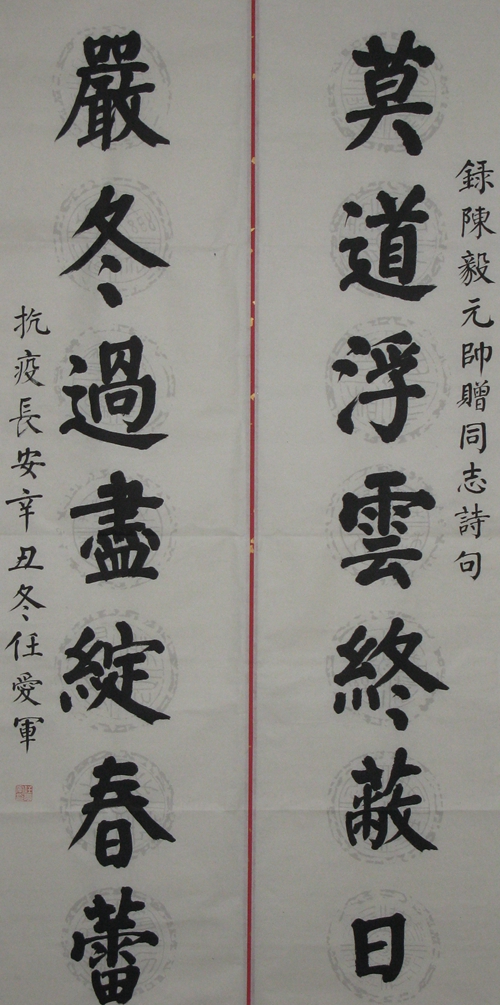 録陳毅元帥贈同志詩句
莫道浮雲終蔽日
嚴冬過盡綻春蕾
抗疫長安辛丑冬任愛軍